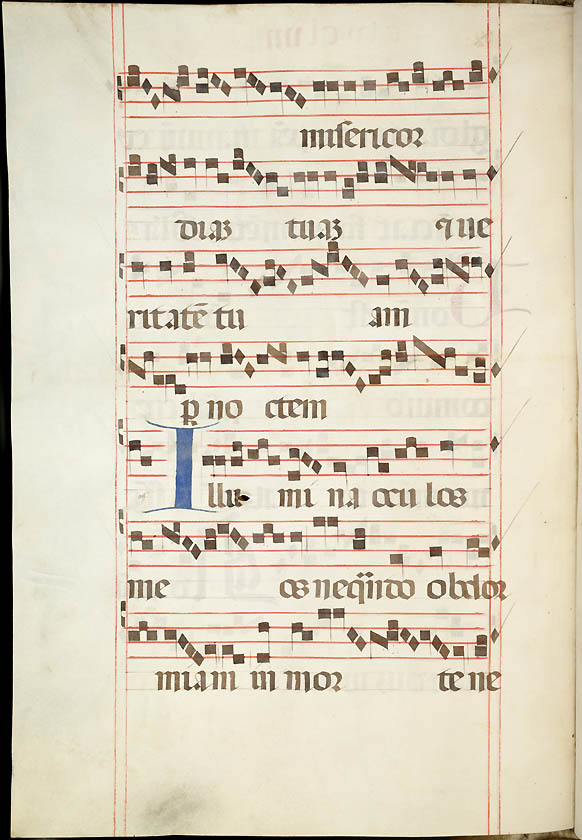 misericor
dias tuas ⁊ ue
ritatē tu am
ꝑ no ctem
Illu mi na ocu los
me os neqñdo obdor
miam in mor te ne